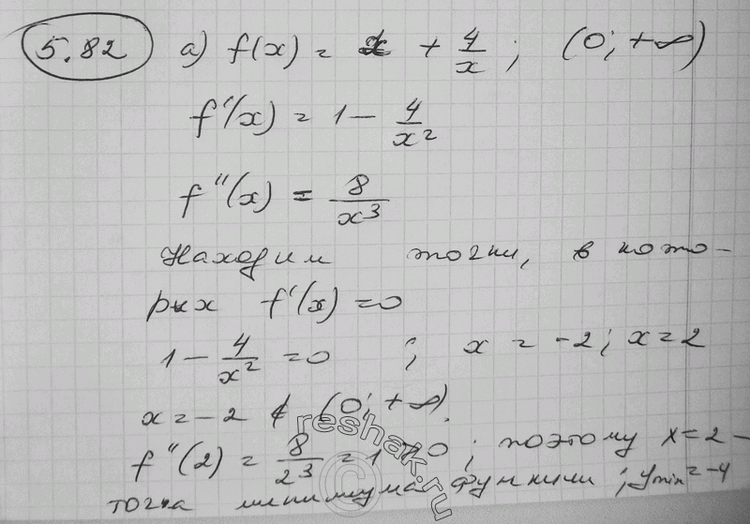 5.82 а) f(x) = x + 4/x ; (0; +∞)
f'(x) = 1 - 4/x²
f''(x) = 8/x³
Находим точки, в кото-
рых f'(x) = 0
1 - 4/x² = 0 ; x = -2; x = 2
x = -2 ∉ (0; +∞).
f''(2) = 8/2³ = 1 > 0 ; поэтому x = 2 -
точка минимума функции ; ymin = -4
reshak.ru